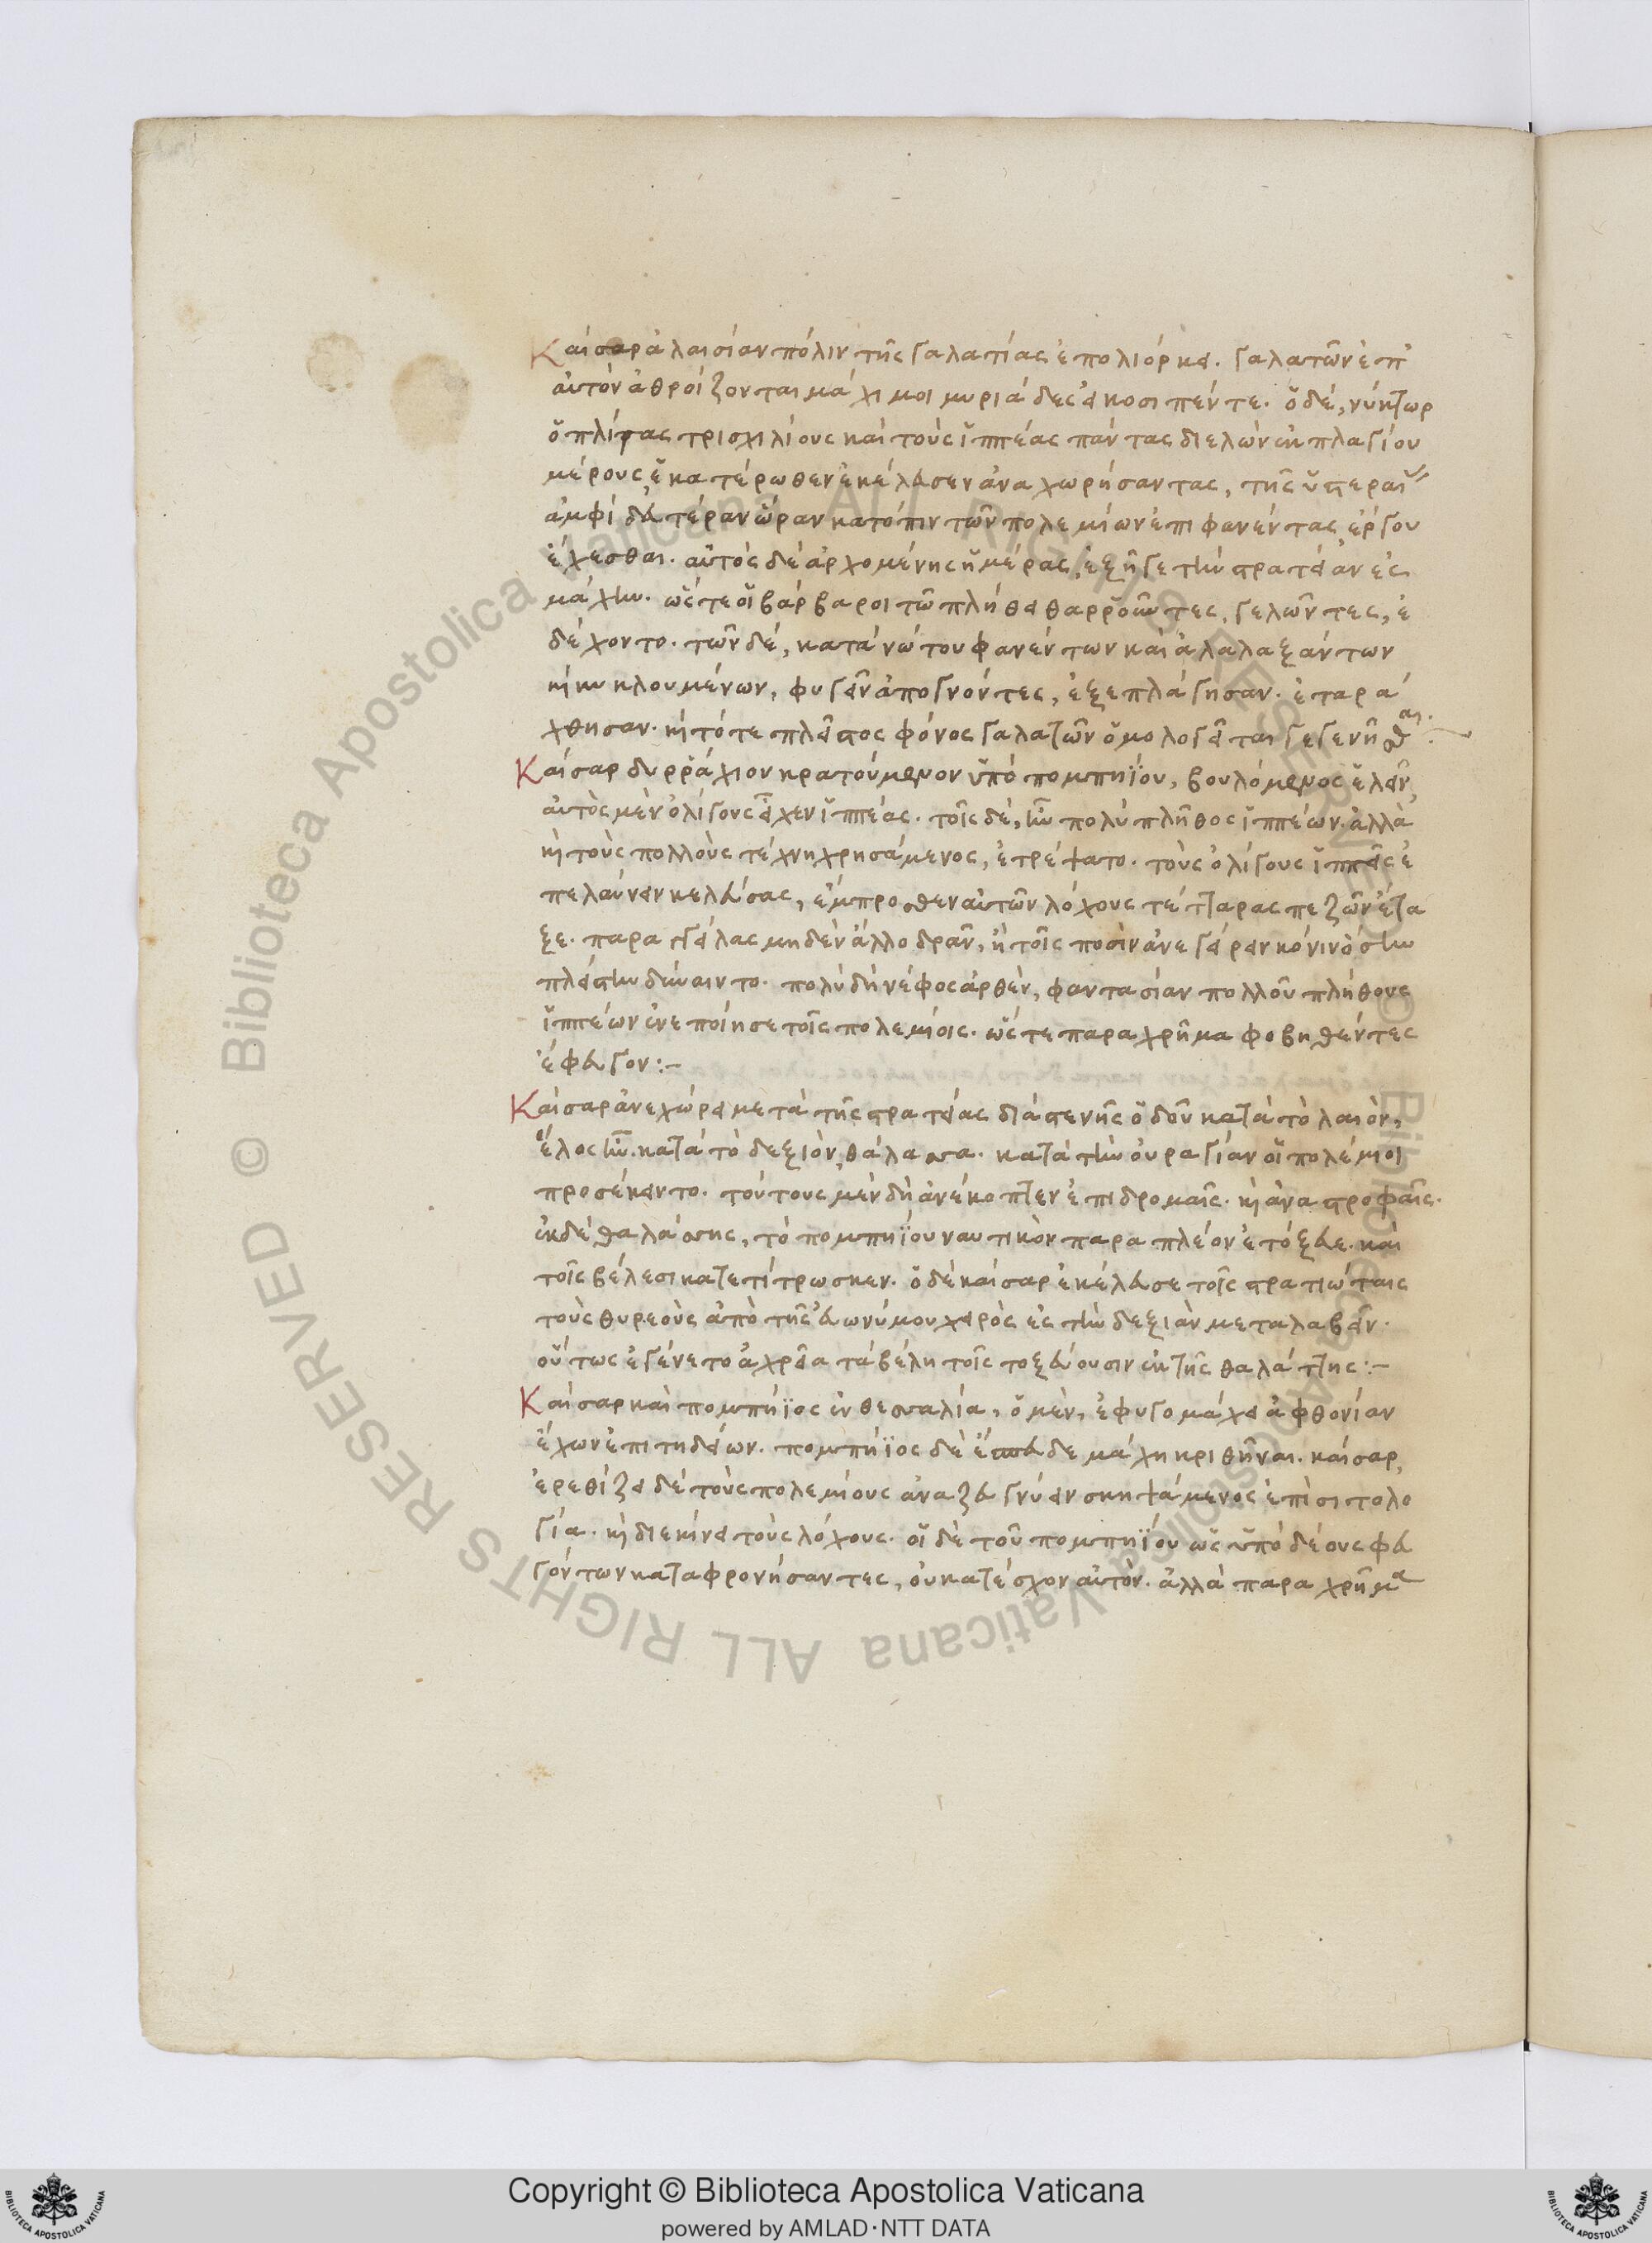 Καῖσαρ ἀλαισίαν πόλιν τῆς γαλατίας ἐπολιόρκει. γαλατῶν ἐπ'
αὐτὸν ἀθροίζονται μάχιμοι μυριάδες εἰκοσιπέντε. ὁ δὲ, νύκτωρ
ὁπλίτας τρισχιλίους καὶ τοὺς ἱππέας πάντας διελὼν ἐκ πλαγίου
μέρους, ἑκατέρωθεν ἐκέλευσεν ἀναχωρήσαντας, τῆς ὑστεραί
ἀμφὶ δευτέραν ὥραν κατόπιν τῶν πολεμίων ἐπιφανέντας, ἔργου
ἔχεσθαι. αὐτὸς δὲ ἀρχομένης ἡμέρας, ἐξῆγε τὴν στρατείαν ἐς
μάχην. ὥστε οἱ βάρβαροι τῶ πλήθει θαρροῦντες, γελῶντες, ἐ
δέχοντο. τῶν δὲ, κατὰ νώτου φανέντων καὶ ἀλαλαξάντων
κὶ κυκλουμένων, φυγεῖν ἀπογνόντες, ἐξεπλάγησαν. ἐταρά
χθησαν. κὶ τότε πλεῖστος φόνος γαλατῶν ὁμολογεῖται γεγενῆσθαι.
Καῖσαρ δυρράχιον κρατούμενον ὑπὸ πομπηΐου, βουλόμενος ἑλεῖν,
αὐτὸς μὲν ὀλίγους εἶχεν ἱππέας. τοῖς δὲ, ἦν πολὺ πλῆθος ἱππέων. ἀλλὰ
κὶ τοὺς πολλοὺς τέχνη χρησάμενος, ἐτρέψατο. τοὺς ὀλίγους ἱππεῖς ἐ
πελαύνειν κελεύσας, ἔμπροσθεν αὐτῶν λόχους τέτταρας πεζῶν ἔτα
ξε. παραγγείλας μηδὲν ἄλλο δρᾶν, ἢ τοῖς ποσὶν ἀνεγείρειν κόνιν ὅσην
πλείστην δύναιντο. πολὺ δὴ νέφος ἀρθὲν, φαντασίαν πολλοῦ πλήθους
ἱππέων ἐνεποίησε τοῖς πολεμίοις. ὥστε παραχρῆμα φοβηθέντες
ἔφευγον:-
Καῖσαρ ἀνεχώρει μετὰ τῆς στρατείας διὰ στενῆς ὁδοῦ κατὰ τὸ λαιὸν,
ἕλος ἦν. κατὰ τὸ δεξιὸν, θάλασσα. κατὰ τὴν οὐραγίαν οἱ πολέμιοι
προσέκειντο. τούτους μὲν δὴ ἀνέκοπτεν ἐπιδρομαῖς. κὶ ἀναστροφαῖς.
ἐκ δὲ θαλάσσης, τὸ πομπηΐου ναυτικὸν παραπλέον ἐτόξευε. καὶ
τοῖς βέλεσι κατετίτρωσκεν. ὁ δὲ καῖσαρ ἐκέλευσε τοῖς στρατιώταις
τοὺς θυρεοὺς ἀπὸ τῆς εὐωνύμου χειρὸς ἐς τὴν δεξιὰν μεταλαβεῖν.
οὕτως ἐγένετο ἀχρεῖα τὰ βέλη τοῖς τοξεύουσιν ἐκ τῆς θαλάττης:-
Καῖσαρ καὶ πομπήϊος ἐν θεσσαλία, ὁ μὲν, ἐφυγομάχει ἀφθονίαν
ἔχων ἐπιτηδείων. πομπήϊος δὲ ἔσπευδε μάχη κριθῆναι. καῖσαρ,
ἐρεθίζει δὲ τοὺς πολεμίους ἀναζευγνύειν σκηψάμενος ἐπὶ σιτολο
γία. κὶ διεκίνει τοὺς λόχους. οἱ δὲ τοῦ πομπηΐου ὡς ὑπὸ δέους φευ
γόντων καταφρονήσαντες, οὐ κατέσχον αὐτὸν. ἀλλὰ παραχρῆμα
© Biblioteca Apostolica Vaticana ALL RIGHTS RESERVED
© Biblioteca Apostolica Vaticana ALL RIGHTS RESERVED
Copyright © Biblioteca Apostolica Vaticana
powered by AMLAD·NTT DATA
BIBLIOTECA APOSTOLICA VATICANA
BIBLIOTECA APOSTOLICA VATICANA